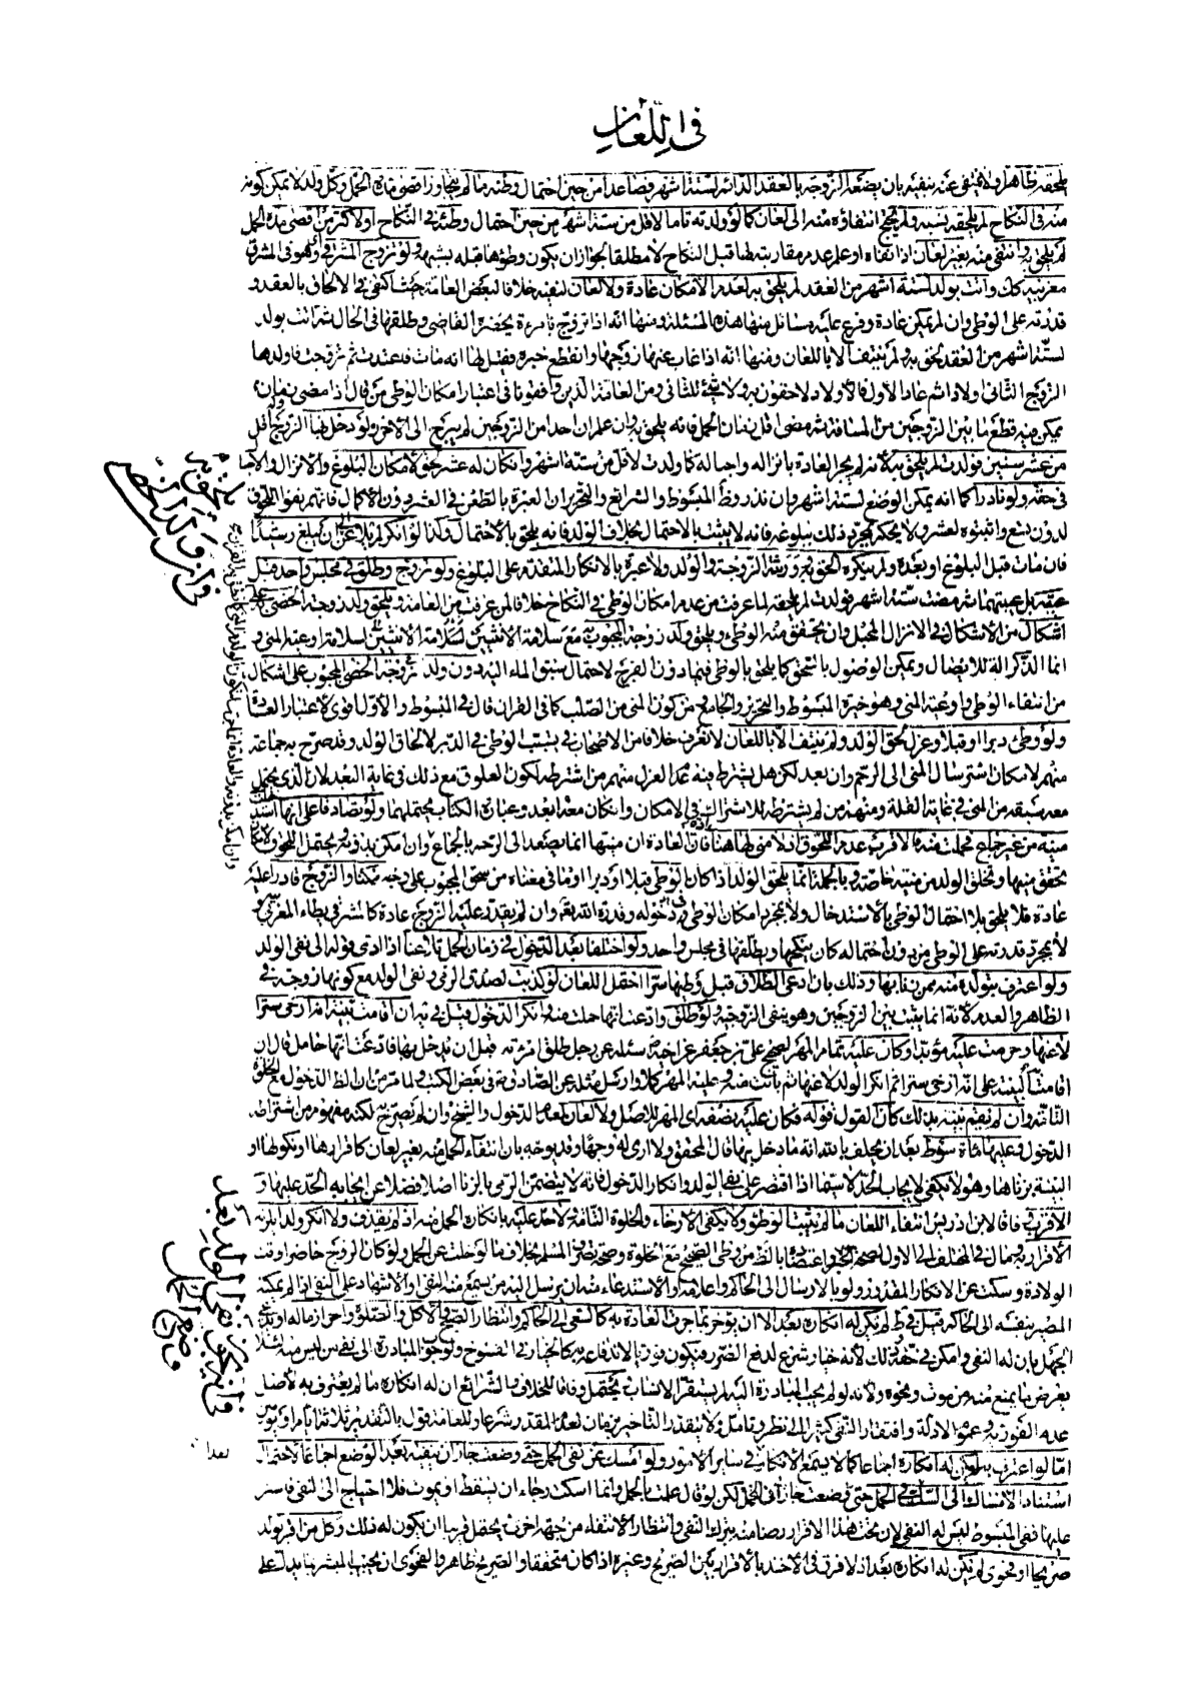 في اللعان
يلحقه ظاهرا ولا ينتفى عنه بنفيه بان يضعه الزوجة بالعقد الدائم لستة اشهر فصاعدا من حين احتمال وطئه ما لم يتجاوز اقصى مدة الحمل وكل ولد لا يمكن كونه
منه فى النكاح لم يلحقه نسبه ولم يحتج انتفاؤه منه الى لعان كما لو ولدته تاما لاقل من ستة اشهر من حين احتمال وطئه فى النكاح او لاكثر من اقصى مدة الحمل
لم يلحق به وانتفى منه بغير لعان اذا نفاه او علم عدم مقاربته لها قبل النكاح لا مطلقا لجواز ان يكون وطؤها قبله بشبهة ولو تزوج المشرقى وهو فى المشرق
مغربية كك واتت بولد لستة اشهر من العقد لم يلحق به لعدم الامكان عادة ولا لعان لنفيه خلافا لبعض العامة حيث اكتفى فى الالحاق بالعقد و
قدرته على الوطى وان لم يمكن عادة وفرع عليه مسائل منها هذه المسئلة ومنها انه اذا تزوج بامرة بحضرة القاضى وطلقها فى الحال ثم اتت بولد
لستة اشهر من العقد لحق به ولم ينتف الا باللعان ومنها انه اذا غاب عنها زوجها وانقطع خبره فقيل لها انه مات فاعتدت ثم تزوجت فاولدها
الزوج الثانى اولادا ثم عاد الاول فالاولاد لاحقون به ولا شئ للثانى ومن العامة الذين وافقونا فى اعتبار امكان الوطى من قال اذا مضى زمان
يمكن فيه قطع ما بين الزوجين من المسافة ثم مضى اقل زمان الحمل فانه يلحق به وان علم ان احدا من الزوجين لم يبرح الى الاخر ولو دخل بها الزوج لاقل
من عشر سنين فولدت لم يلحق به لانه لم يجر العادة بانزاله واحباله كما ولدت لاقل من ستة اشهر وان كان له عشر لحق لامكان البلوغ والانزال والاحبال
فى حقه ولو نادرا كما انه يمكن الوضع لستة اشهر وان ندر وظ المبسوط والشرائع والتحرير ان العبرة بالطعن فى العشر دون الاكمال فانهم نفوا اللحوق
لدون تسع واثبتوه لعشر ولا يحكم بمجرد ذلك ببلوغه فانه لا يثبت بالاحتمال بخلاف الولد فانه يلحق بالاحتمال وكذا لو انكر لم يلاعن الى ان يبلغ رشيدا
فان مات قبل البلوغ او بعده ولم ينكره الحق به وورثته الزوجة والولد ولا عبرة بالانكار المتقدم على البلوغ ولو تزوج وطلق فى مجلس واحد قبل
غيبته بل غيبتهما ثم مضت ستة اشهر فولدت لم يلحقه لما عرفت من عدم امكان الوطى فى النكاح خلافا لمن عرفت من العامة ويلحق ولد زوجة الخصى على
اشكال من الاشكال فى الانزال المحبل وان تحقق منه الوطى ويلحق ولد زوجة المجبوب مع سلامة الانثيين لسلامة اوعية المنى و
انما الذكر الة للايصال ويمكن الوصول بالسحق كما يلحق بالوطى فيما دون الفرج لاحتمال سبق الماء اليه دون ولد زوجة الخصى المجبوب على اشكال
من انتفاء الوطى واوعية المنى وهو خيرة المبسوط والتحرير والجامع ومن كون المنى من الصلب كما فى القران قال فى المبسوط والاول اقوى لاعتبار العادة
ولو وطئ دبرا او قبلا وعزل لحق الولد ولم ينتف الا باللعان لا نعرف خلافا من الاصحاب فى تسبب الوطى فى الدبر لالحاق الولد وقد صرح به جماعة
منهم لامكان استرسال المنى الى الرحم وان بعد لكن هل يشترط فيه عدم العزل منهم من اشترطه لكون العلوق مع ذلك فى غاية البعد لان الذى يحتمل
معه سبقه من المنى فى غاية القلة ومنهم من لم يشترطه للاشتراك فى الامكان وان كان معه ابعد وعبارة الكتاب يحتملهما ولو تصادقا على انها استدخلت
منيه من غير جماع فحملت منه فالاقرب عدم اللحوق اذ لا منى لها هنا فان العادة ان منيها انما يصعد الى الرحم بالجماع وان امكن بدونه ويحتمل اللحوق لامكان
تحقق منيها وتخلق الولد من منيه خاصة وبالجملة انما يلحق الولد اذا كان الوطى قبلا او دبرا او ما فى معناه من سحق المجبوب على وجه ممكنا والزوج قادرا عليه
عادة فلا يلحق بلا احتمال الوطى بالاستدخال ولا بمجرد امكان الوطى فى دخوله وقدرة الله تعالى وان لم يقدر عليه الزوج عادة كالمشرقى بطاء المغربية و
لا بمجرد قدرته على الوطى من دون احتماله كان ينكحها ويطلقها فى مجلس واحد ولو اختلفا بعد الدخول فى زمان الحمل تلاعنا اذا ادى قوله الى نفى الولد
ولو اعترف بتولده منه ممن زنى بها وذلك بان ادعى الطلاق قبل وطئها سرا احتمل اللعان لو كذبت لصدق الرمى ونفى الولد مع كونها زوجة فى
الظاهر والعدم لانه انما يثبت بين الزوجين وهو ينفى الزوجية ولو طلق وادعت انها حملت منه وانكر الدخول فقيل فى يه ان اقامت بينة انه ارخى سترا
لاعنها وحرمت عليه مؤبدا وكان عليه تمام المهر لصحيح على بن جعفر عن اخيه سئله عن رجل طلق امرئته قبل ان يدخل بها فادعت انها حامل قال ان
اقامت البينة على انه ارخى سترا ثم انكر الولد لاعنها ثم بانت منه وعليه المهر كملا وارسل مثله عن الصادق فى بعض الكتب ولما مر من ان الظ الدخول مع الخلوة
التامة وان لم يقم بينة بذلك كان القول قوله فكان عليه نصفه اى المهر للاصل ولا لعان لعدم الدخول والشيخ وان لم يصرح به لكنه مفهوم من اشتراطه
الدخول وعليها مائة سوط بعد ان يحلف بالله انه ما دخل بها قال المحقق ولا ارى له وجها وقد يوجه بان انتفاء الحمل منه بغير لعان كاقرارها او نكولها او
البينة بزناها وهو لا يكفى لايجاب الحد لا سيما اذا اقتصر على نفى الولد وانكار الدخول فانه لا يتضمن الرمى بالزنا اصلا فضلا عن ايجابه الحد عليها و
الاقرب وفاقا لابن ادريس انتفاء اللعان ما لم يثبت الوطؤ ولا يكفى الارخاء والخلوة التامة لاحد عليه بانكاره الحمل منه اذ لم يقذف ولا انكر ولدا يلزمه
الاقرار به ومال فى المختلف الى الاول لصحة الخبر واعتضاده بالظ من وطى الصحيح مع الخلوة وصحة تصرف المسلم بخلاف ما لو خلت عن الحمل ولو كان الزوج حاضرا وقت
الولادة وسكت عن الانكار المقدور ولو بالارسال الى الحاكم واعلامه او الاستدعاء منه ان يرسل اليه من يسمع منه النفى او الاشهاد على النفى اذا لم يمكنه
المصير بنفسه الى الحاكم قيل فى ط لم يكن له انكاره بعد الا ان يؤخر بما جرت العادة به كالسعى الى الحاكم وانتظار الصبح والاكل والصلوة واحراز ماله او يدعى
الجهل بان له النفى وامكن فى حقه وذلك لانه خيار شرع لدفع الضرر فيكون فوريا لاندفاعه به كالخيار فى الفسوخ ولوجوب المبادرة الى نفى من ليس منه لئلا
يعرض ما يمنع منه من موت ونحوه ولانه لو لم يجب المبادرة اليه لم يستقر الانساب ويحتمل وفاقا للخلاف والشرائع ان له انكاره ما لم يعترف به لاصل
عدم الفورية وعموم الادلة وافتقار النفى كثيرا الى نظر وتامل ولا يتقدر التاخير بزمان لعدم المقدر شرعا وللعامة قول بالتقدير بثلاثة ايام او يومين
اما لو اعترف به لم يكن له انكاره اجماعا كما لا يسمع الانكار فى ساير الامور ولو امسك عن نفى الحمل حتى وضعت جاز ان ينفيه بعد الوضع اجماعا لاحتمال
استناد الامساك الى الشك فى الحمل حتى وضعت جاز نفى الحمل لكن لو قال علمت بالحمل وانما اسكت رجاء ان يسقط او يموت فلا احتياج الى نفى فاستر
عليها ففى المبسوط ليس له النفى لان تحت هذا الاقرار رضا منه بترك النفى وانتظار الانتفاء من جهة اخرى ويحتمل قريبا ان يكون له ذلك وكل من اقر بولد
صريحا او فحوى لم يكن له انكاره بعد اذ لا فرق فى الاخذ بالاقرار بين الصريح وغيره اذا كان متحققا والصريح ظاهر والفحوى ان يجيب المبشر بما يدل على